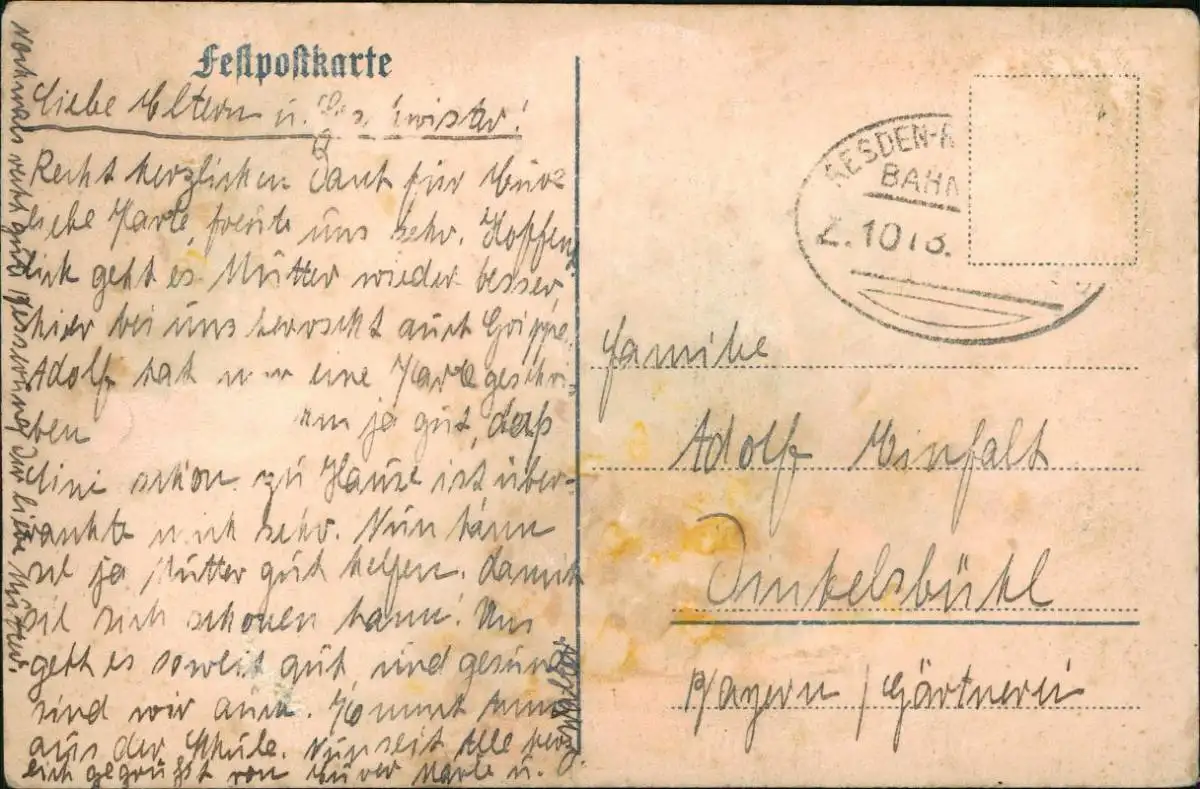 Festpostkarte
Liebe Eltern u.
Recht herzlichen Dank für Eure
liebe Karte, freute uns sehr. Hoffent
lich geht es Mutter wieder besser,
hier bei uns herrscht auch Grippe.
Adolf hat nur eine Karte geschri-
eben ja gut, dass
Mini schon zu Hause ist, über-
raschte mich sehr. Nun kann
sie ja Mutter gut helfen, damit
sie sich schonen kann! Uns
geht es soweit gut, und gesund
sind wir auch. Kommt
aus der Schule. Nun seit Alle herz
lich gegrüßt von Eurer u.
Nochmals recht gute Besserung Dir liebe Mutter.
RESDEN-
BAHN
2.10 13.
Familie
Adolf Einfalt
Dinkelsbühl
Bayern / Gärtnerei